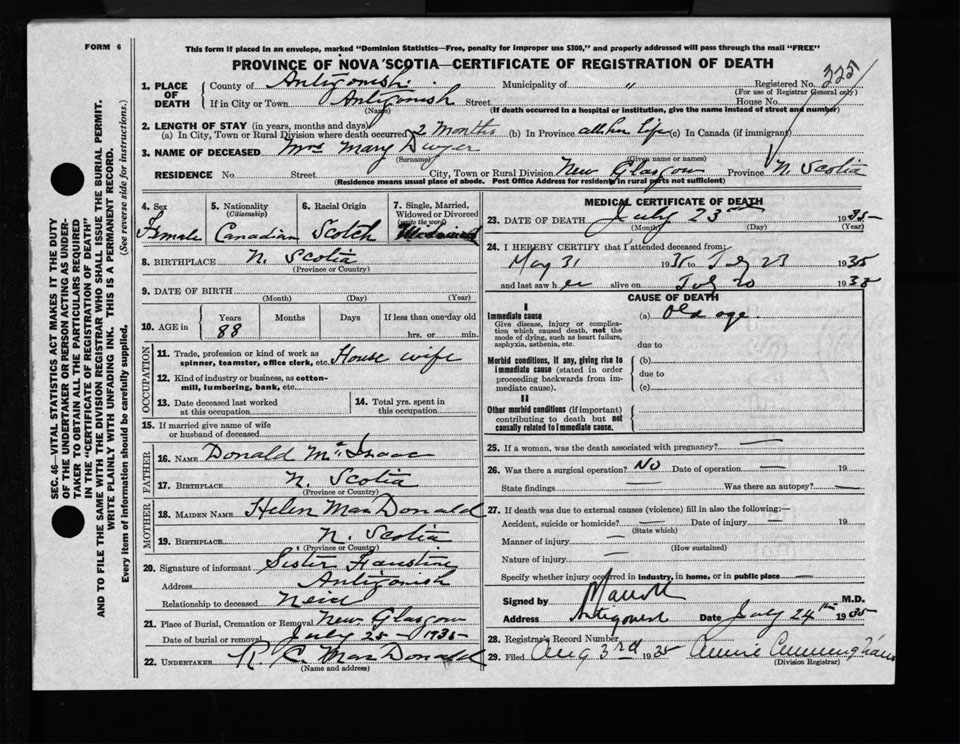 FORM 6
This form if placed in an envelope, marked "Dominion Statistics—Free, penalty for improper use $300," and properly addressed will pass through the mail "FREE"
PROVINCE OF NOVA SCOTIA—CERTIFICATE OF REGISTRATION OF DEATH
1. PLACE OF DEATH
County of Antigonish Municipality of " Registered No. 3251
(For use of Registrar General only)
If in City or Town Antigonish Street House No.
(Name) (If death occurred in a hospital or institution, give the name instead of street and number)
2. LENGTH OF STAY (in years, months and days)
(a) In City, Town or Rural Division where death occurred 2 months (b) In Province all her life (c) In Canada (if immigrant)
3. NAME OF DECEASED Mrs Mary Dwyer
(Surname) (Given name or names)
RESIDENCE No Street City, Town or Rural Division New Glasgow Province N. Scotia
(Residence means usual place of abode. Post Office Address for residents in rural parts not sufficient)
4. Sex Female
5. Nationality (Citizenship) Canadian
6. Racial Origin Scotch
7. Single, Married, Widowed or Divorced (write the word)
8. BIRTHPLACE N. Scotia
(Province or Country)
9. DATE OF BIRTH
(Month) (Day) (Year)
10. AGE in Years Months Days If less than one day old
88 hrs. or min.
OCCUPATION
11. Trade, profession or kind of work as spinner, teamster, office clerk, etc. House wife
12. Kind of industry or business, as cotton-mill, lumbering, bank, etc.
13. Date deceased last worked at this occupation
14. Total yrs. spent in this occupation
15. If married give name of wife or husband of deceased
FATHER
16. NAME Donald McIsaac
17. BIRTHPLACE N. Scotia
(Province or Country)
MOTHER
18. MAIDEN NAME Helen MacDonald
19. BIRTHPLACE N. Scotia
(Province or Country)
20. Signature of informant Sister Faustina
Address Antigonish
Relationship to deceased Neice
21. Place of Burial, Cremation or Removal New Glasgow
Date of burial or removal July 25 - 1935
22. UNDERTAKER R. C. MacDonald
(Name and address)
MEDICAL CERTIFICATE OF DEATH
23. DATE OF DEATH July 23rd 1935
(Month) (Day) (Year)
24. I HEREBY CERTIFY that I attended deceased from:
May 31 1935 to July 23 1935
and last saw her alive on July 20 1935
CAUSE OF DEATH
I
Immediate cause
Give disease, injury or complication which caused death, not the mode of dying, such as heart failure, asphyxia, asthenia, etc.
(a) Old age.
due to
Morbid conditions, if any, giving rise to immediate cause (stated in order proceeding backwards from immediate cause).
(b)
due to
(c)
II
Other morbid conditions (if important) contributing to death but not causally related to immediate cause.
25. If a woman, was the death associated with pregnancy? —
26. Was there a surgical operation? No Date of operation — 19
State findings — Was there an autopsy? —
27. If death was due to external causes (violence) fill in also the following:—
Accident, suicide or homicide? — Date of injury — 19
(State which)
Manner of injury —
(How sustained)
Nature of injury —
Specify whether injury occurred in industry, in home, or in public place —
Signed by M.D.
Address Antigonish Date July 24th 1935
28. Registrar's Record Number
29. Filed Aug 3rd 1935 Annie Cunningham
(Division Registrar)
AND TO FILE THE SAME WITH THE DIVISION REGISTRAR WHO SHALL ISSUE THE BURIAL PERMIT.
SEC. 46—VITAL STATISTICS ACT MAKES IT THE DUTY OF THE UNDERTAKER OR PERSON ACTING AS UNDERTAKER TO OBTAIN ALL THE PARTICULARS REQUIRED IN THE "CERTIFICATE OF REGISTRATION OF DEATH"
WRITE PLAINLY WITH UNFADING INK. THIS IS A PERMANENT RECORD.
Every item of information should be carefully supplied. (See reverse side for instructions.)